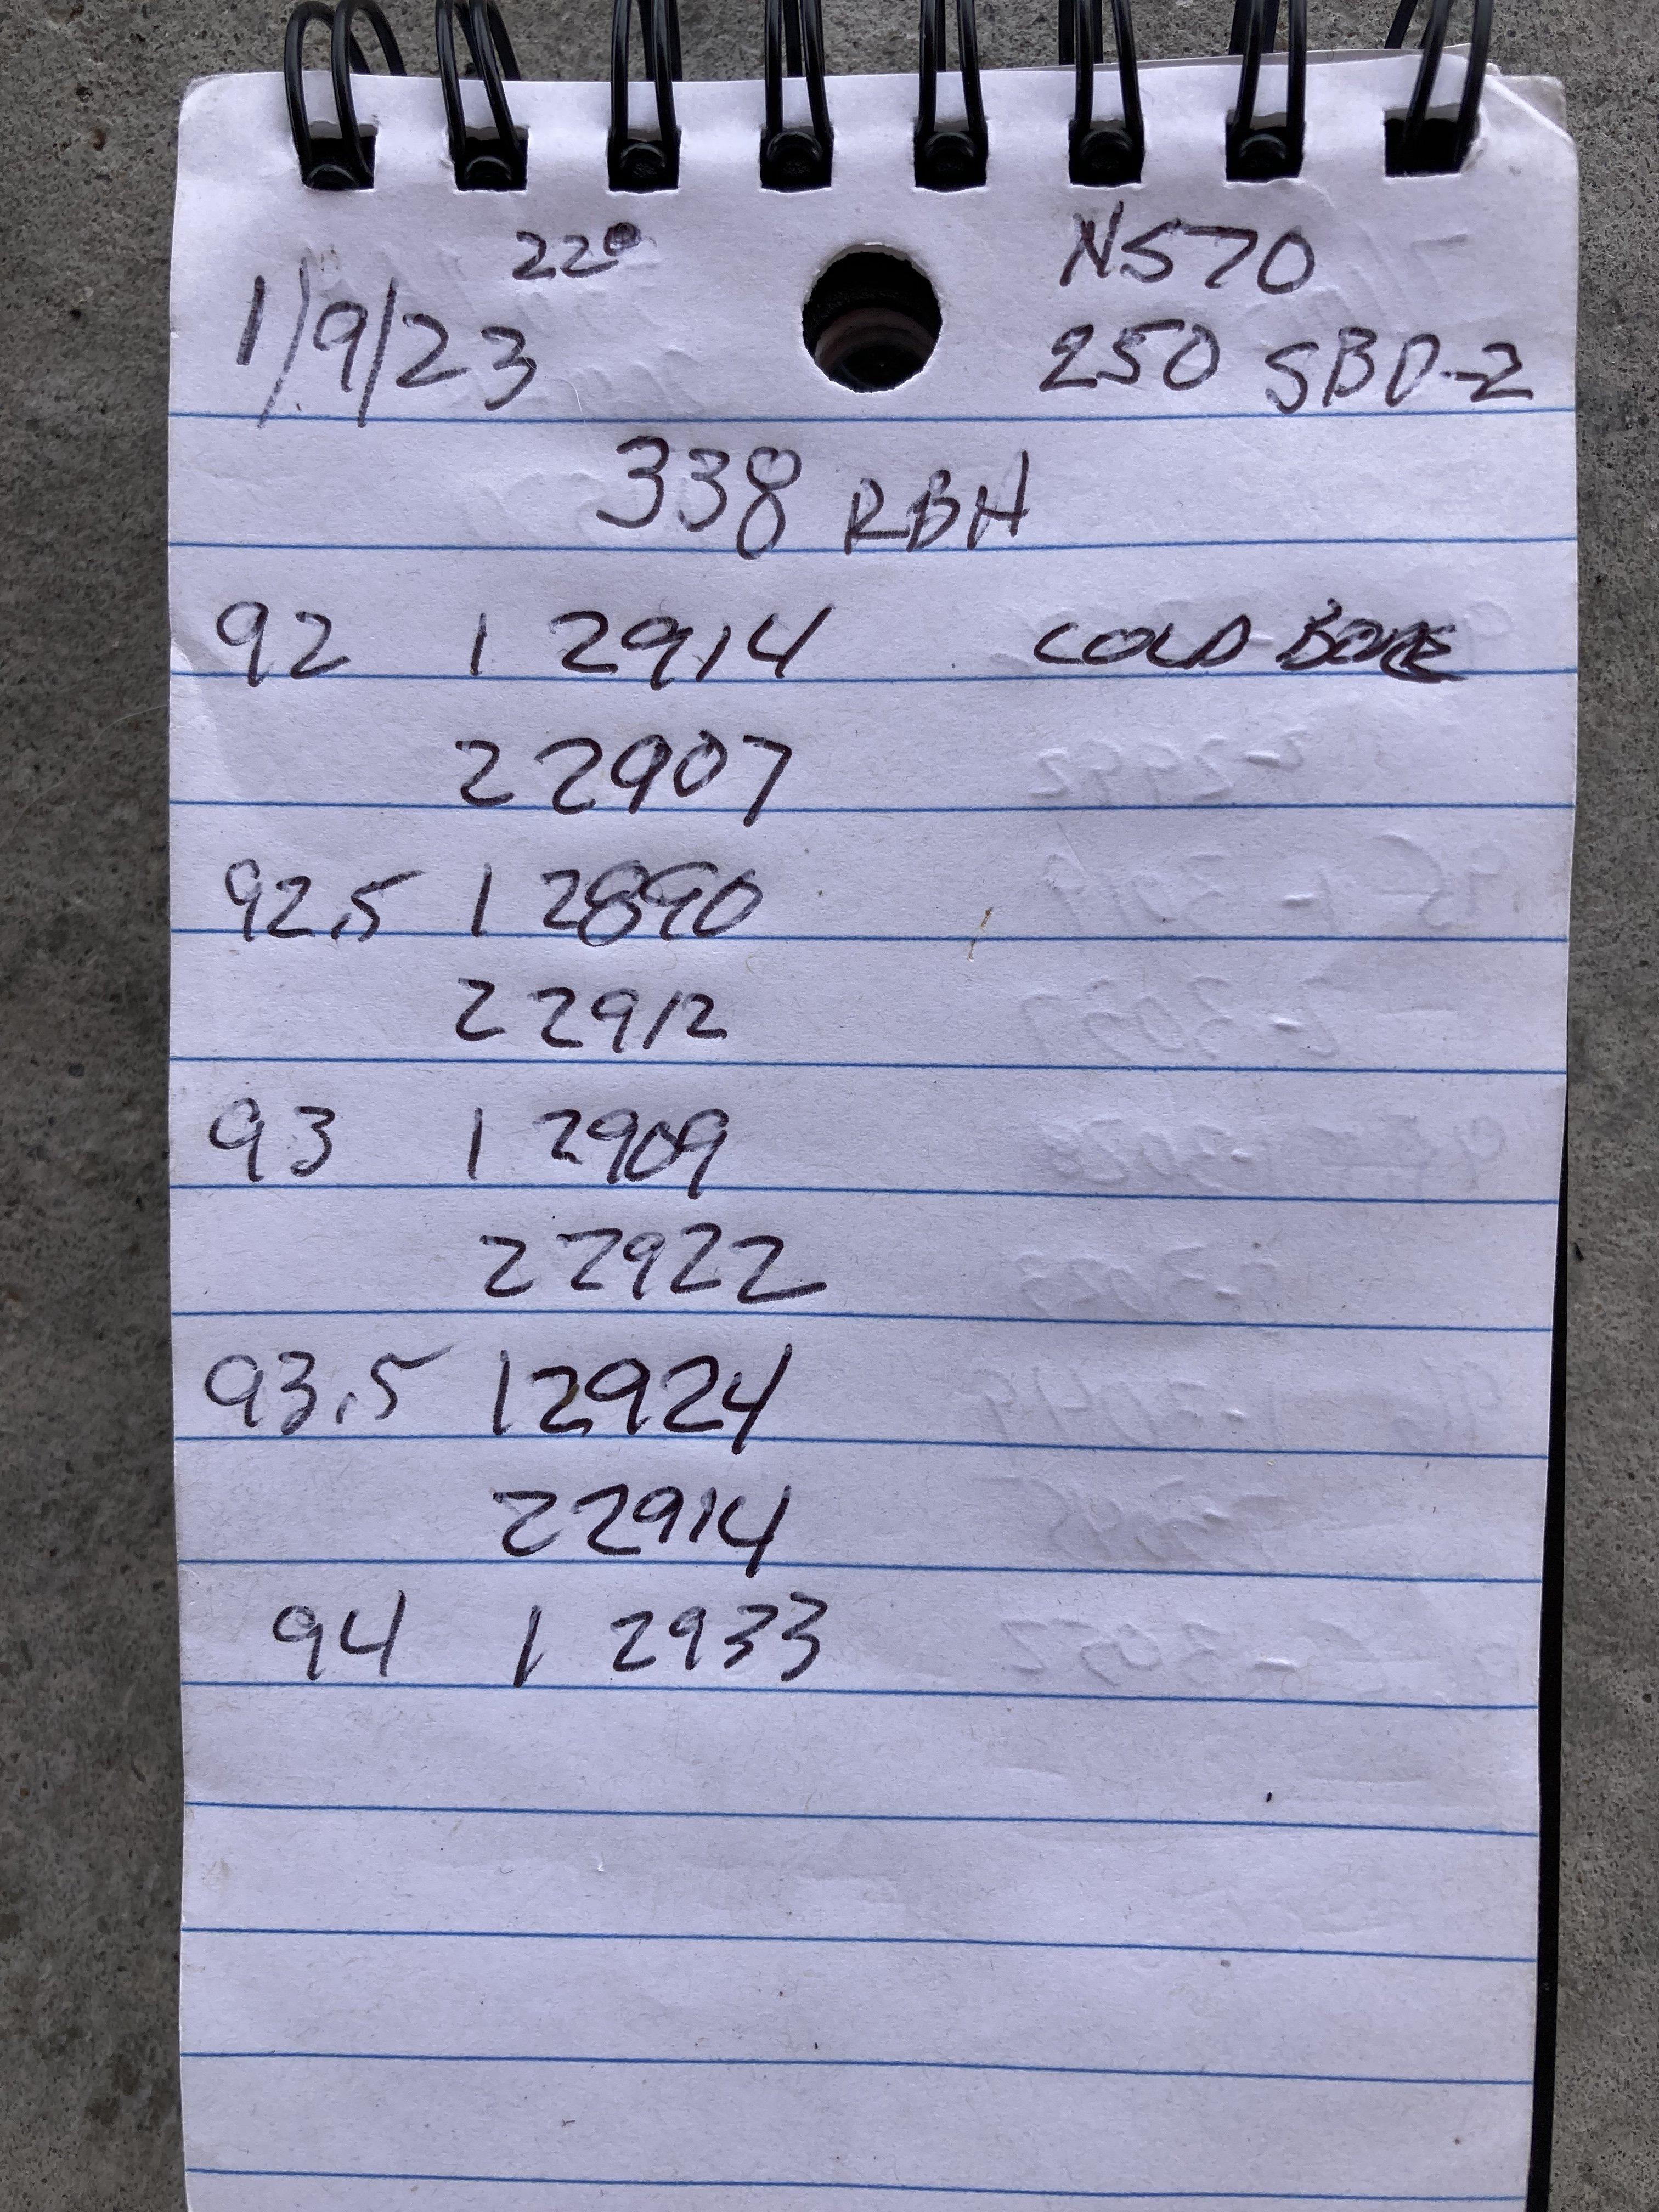 22° N570
1/9/23 250 SBD-2
338 RBH
92 1 2914 COLD BORE
2 2907
92.5 1 2890
2 2912
93 1 2909
2 2922
93.5 1 2924
2 2914
94 1 2933